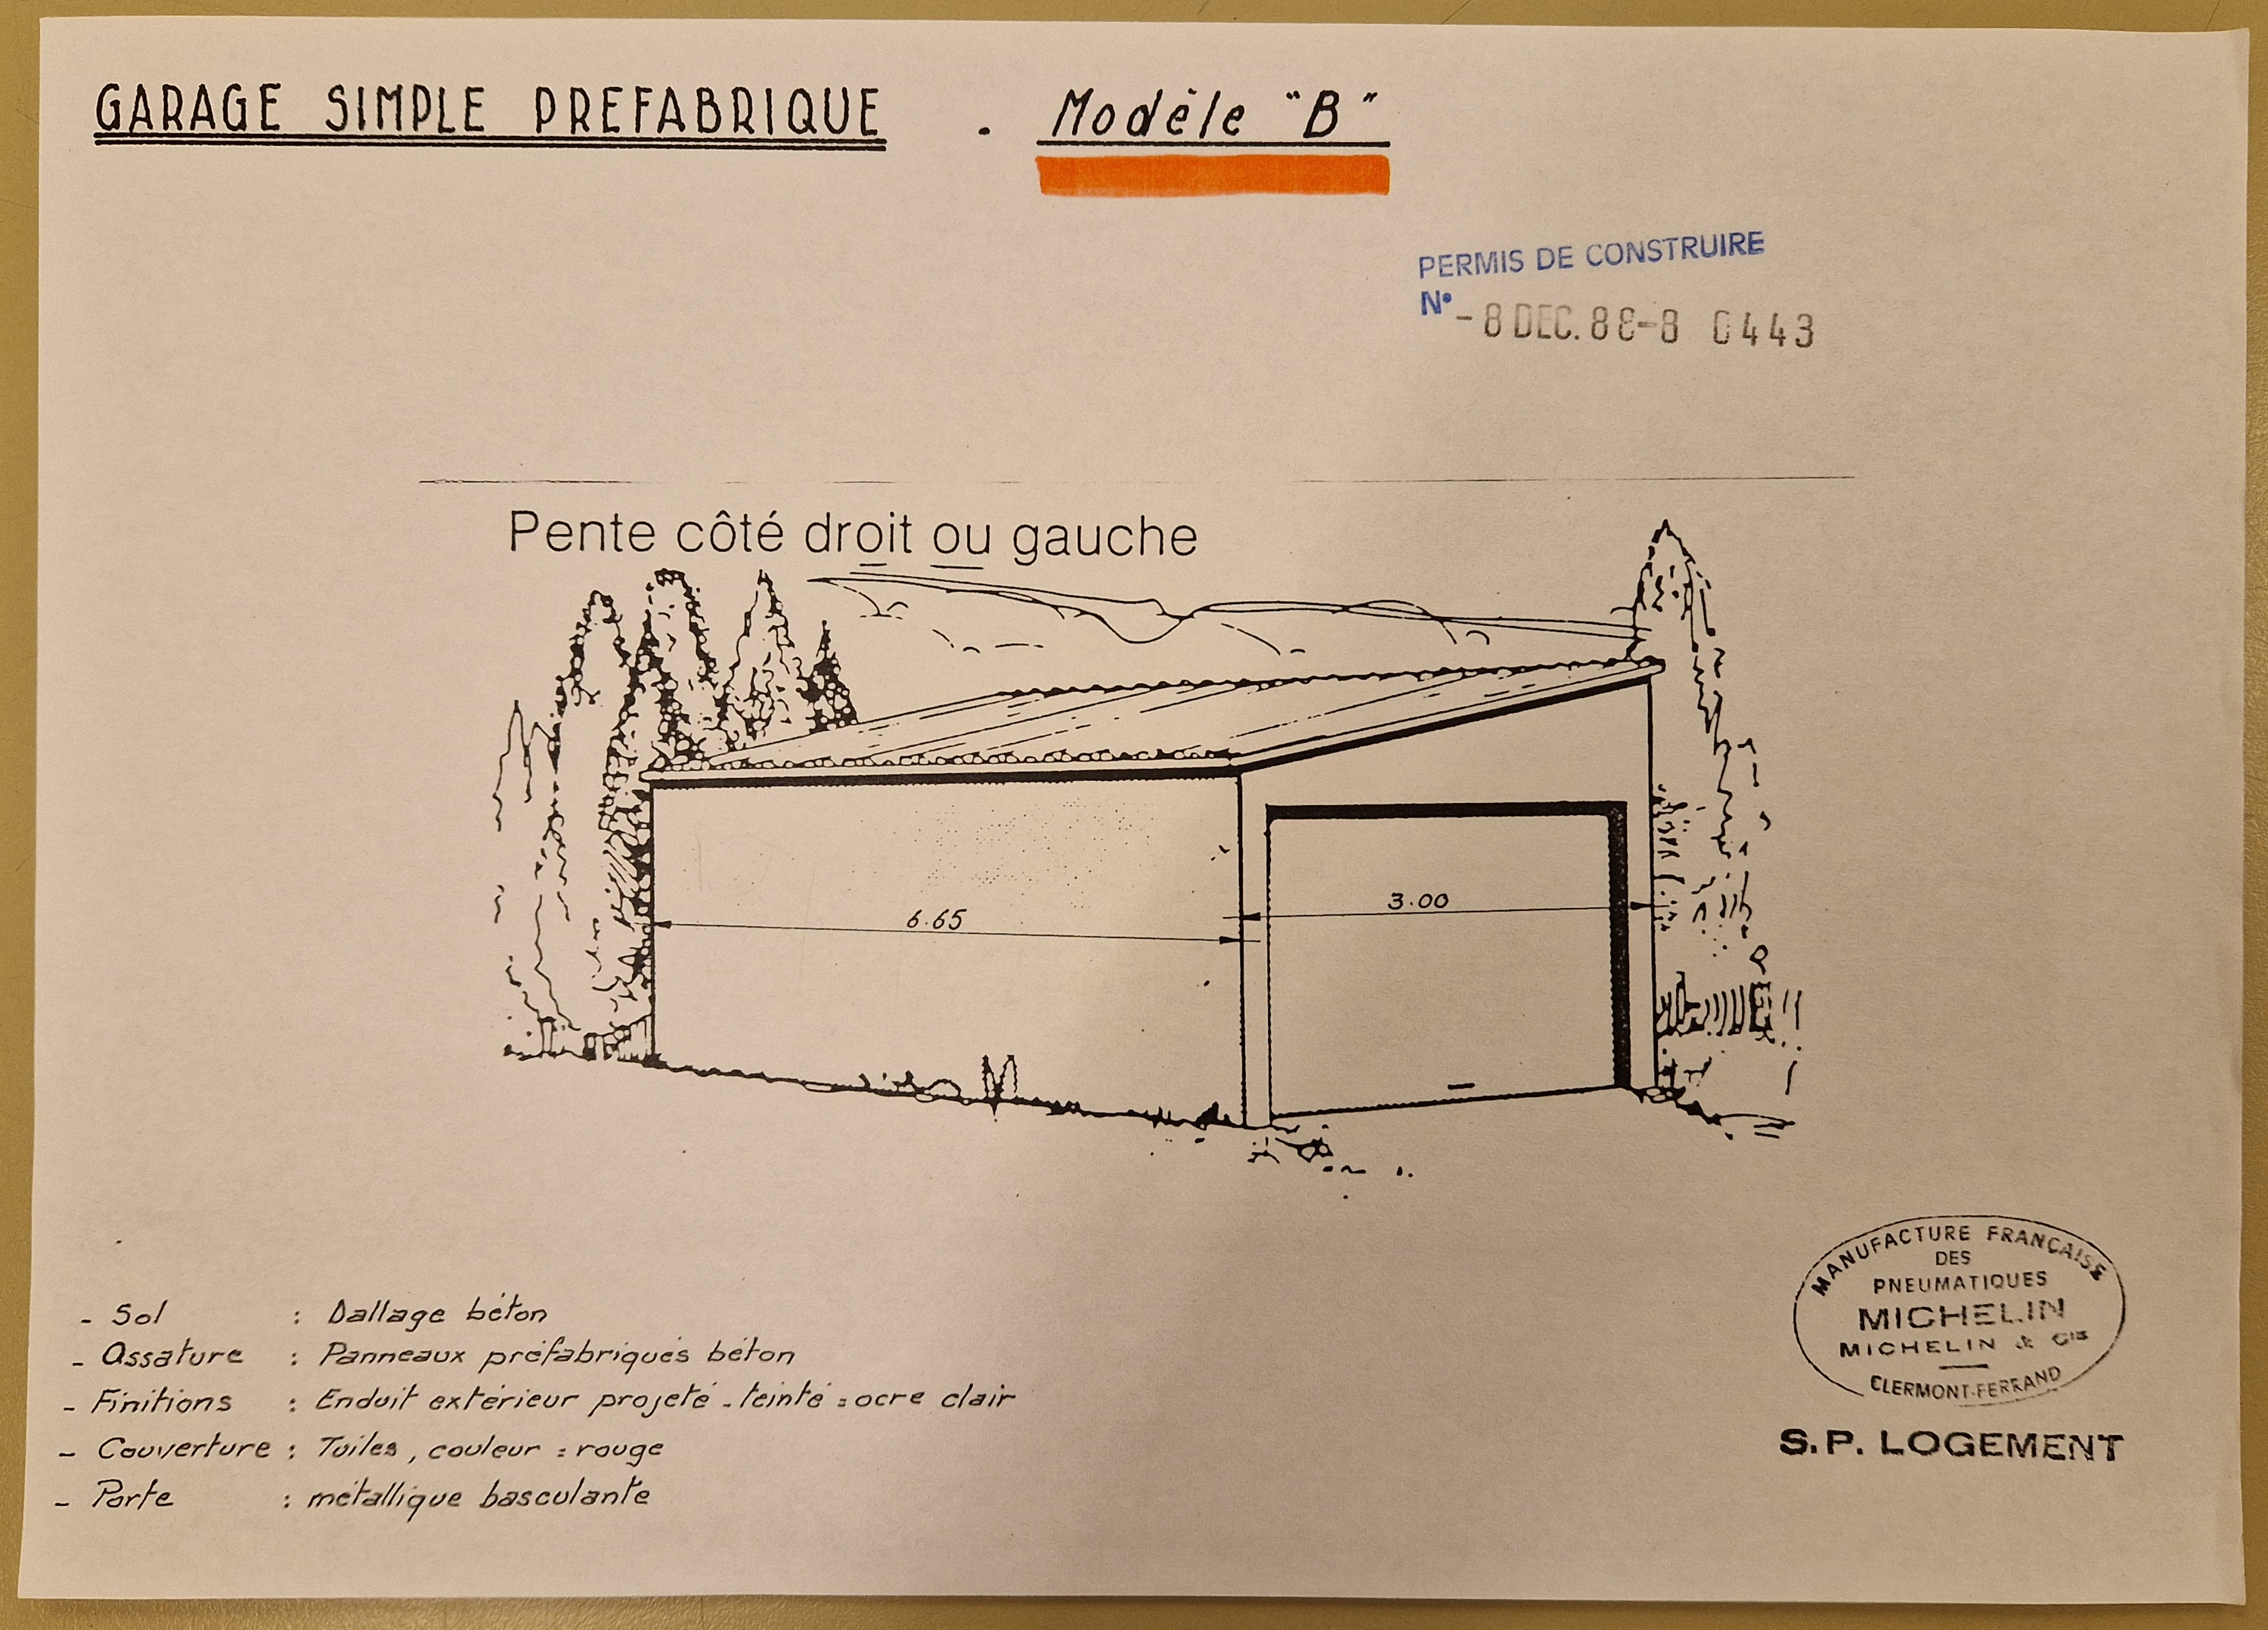 GARAGE SIMPLE PREFABRIQUE . Modèle "B"
PERMIS DE CONSTRUIRE
N° - 8 DEC. 88-8 0443
Pente côté droit ou gauche
6.65
3.00
- Sol : Dallage béton
- Ossature : Panneaux préfabriqués béton
- Finitions : Enduit extérieur projeté - teinté : ocre clair
- Couverture : Tuiles, couleur : rouge
- Porte : métallique basculante
MANUFACTURE FRANÇAISE
DES
PNEUMATIQUES
MICHELIN
MICHELIN & CIE
CLERMONT-FERRAND
S.P. LOGEMENT